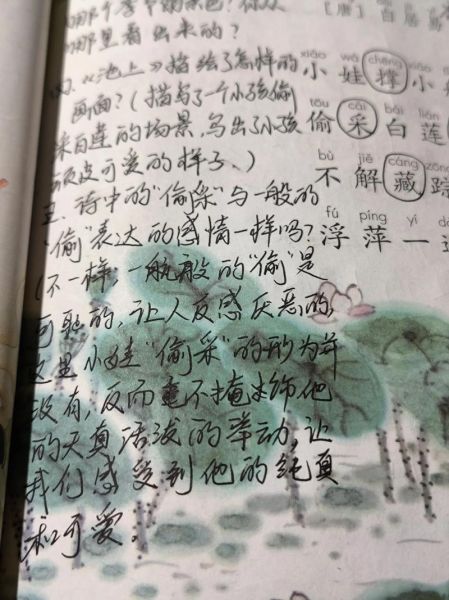 哪个季节的景色？你从
哪里看出来的？
四.《池上》描绘了怎样的
画面？（描写了一个小孩偷
采白莲的场景，写出了小孩
顽皮可爱的样子。）
五.诗中的“偷采”与一般的
“偷”表达的感情一样吗？
（不一样；一般般的“偷”是
可耻的，让人反感厌恶的，
这里小娃“偷采”的行为并
没有，反而毫不掩饰他
的天真活泼的举动，让
我们感受到他的纯真
和可爱。
[唐] 白居易
xiǎo wá chēng
小娃撑小
tōu cǎi bái lián
偷采白莲
bù jiě cáng zōng
不解藏踪
fú píng yí dào
浮萍一道